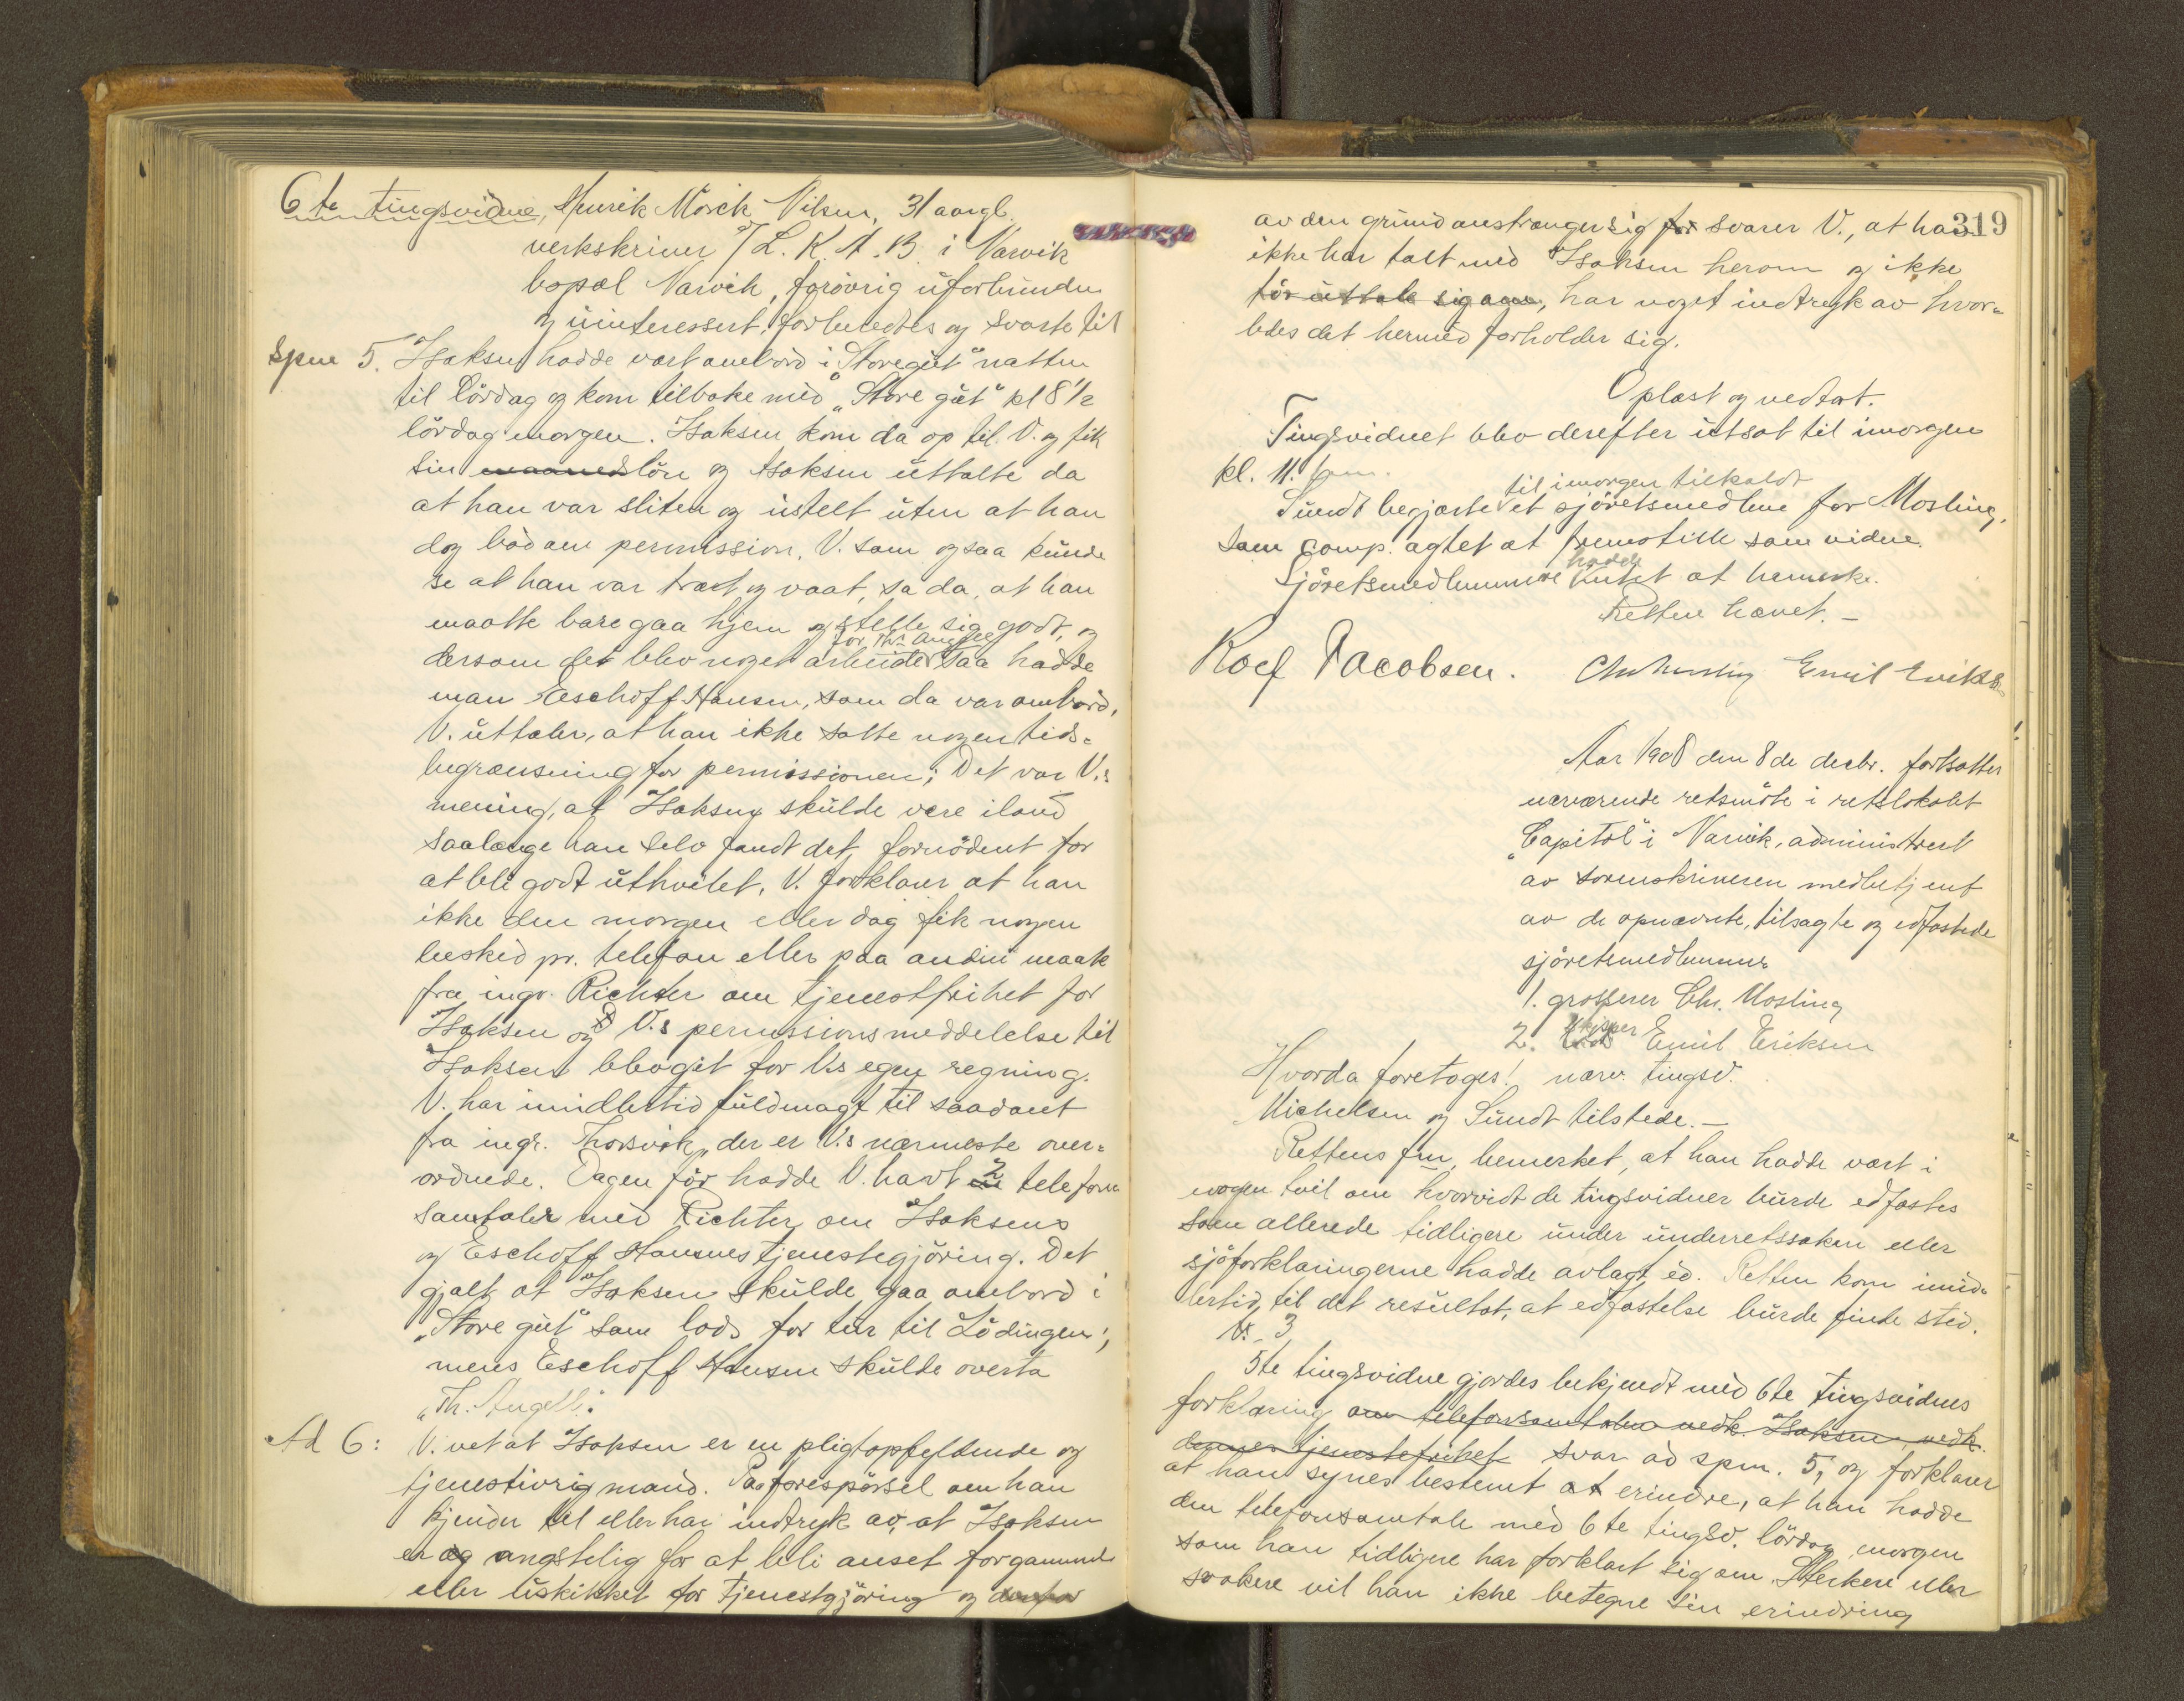 6te tingsvidne, Henrik Mörck Nilsen, 31 aargl.
verkskriver v/ L. K. A. B. i Narvik
bopæl Narvik, forövrig uforbunden
og uinteressert, forberedtes og svarte til
Spm 5. Isaksen hadde vært ombord i "Storegut" natten
til lördag og kom tilbake med "Store gut" kl 8 1/2
lördag morgen. Isaksen kom da op til V. og fik
sin maanedslön og Isaksen uttalte da
at han var sliten og ustelt uten at han
dog bad om permission. V. som ogsaa kunde
se at han var træt og vaat, sa da, at han
maatte bare gaa hjem og stelle sig godt, og
for Th. Angell
dersom det blev noget arbeide saa hadde
man Eschoff Hansen, som da var ombord.
V. uttaler, at han ikke satte nogen tids-
begrænsning for permissionen; Det var V.s
mening, at Isaksen skulde være iland
saalænge han selv fandt det fornödent for
at bli godt uthvilet. V. forklarer at han
ikke den morgen eller dag fik nogen
beskjed pr. telefon eller paa anden maate
fra ingr. Richter om tjenestfrihet for
Isaksen og V.s permissionsmeddelelse til
Isaksen blev git for V.s egen regning.
V. har imidlertid fuldmagt til saadant
fra ingr. Thorsvik, der er V.s nærmeste over-
ordnede. Dagen för hadde V. havt 2 telefon
samtaler med Richter om Isaksens
og Eschoff Hansens tjenestegjöring. Det
gjalt at Isaksen skulde gaa ombord i
"Store gut" som lods for tur til Lödingen;
mens Eschoff Hansen skulde overta
"Th. Angell".
Ad 6: V. vet at Isaksen er en pligtopfyldende og
tjenestivrig mand. Paa forespörsel om han
kjender til eller har indtryk av, at Isaksen
er og ængstelig for at bli anset for gammel
eller uskikket for tjenestgjöring og derfor
319
av den grund anstrenger sig for svarer V., at han
ikke har talt med Isaksen herom og ikke
tör uttale sig om, har noget indtryk av hvor-
ledes det hermed forholder sig.
Oplæst og vedtat.
Tingsvidnet blev derefter utsat til imorgen
kl. 11 fm.
til imorgen tilkaldt
Sundt begjærte et sjöretsmedlem for Mosling,
som comp. agtet at fremstille som vidne.
hadde
Sjöretsmedlemmerne intet at bemerke.
Retten hævet. –
Roef Jacobsen. Chr Mosling Emil Eriksen
Aar 1908 den 8de decbr. fortsattes
nærværende retsmöte i retslokalet
"Capitol" i Narvik, administrert
av sorenskriveren medbetjent
av de opnævnte, tilsagte og edfæstede
sjöretsmedlemmer
1. grosserer Chr. Mosling
skipper
2. Emil Eriksen
Hvorda foretoges! nærv. tingsv.
Michelsen og Sundt tilstede. –
Rettens fm. bemerket, at han hadde vært i
nogen tvil om hvorvidt de tingsvidner burde edfæstes
som allerede tidligere under underretssaken eller
sjöforklaringerne hadde avlagt ed. Retten kom imid-
lertid til det resultat, at edfæstelse burde finde sted.
V. 3
5te tingsvidne gjordes bekjendt med 6te tingsvidnes
forklaring om telefonsamtalen vedk. Isaksen, vedk.
dennes tjenestefrihet svar ad spm. 5, og forklarer
at han synes bestemt at erindre, at han hadde
den telefonsamtale med 6te tingsv. lördag morgen
som han tidligere har forklart sig om. Sterkere eller
svakere vil han ikke betegne sin erindring